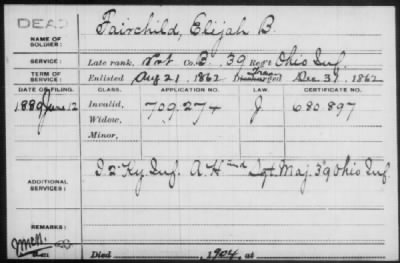 DEAD
NAME OF SOLDIER: Fairchild, Elijah B.
SERVICE: Late rank, Pvt Co. B, 39 Reg't Ohio Inf.
TERM OF SERVICE: Enlisted Aug 21, 1862 Discharged Trans Dec 31, 1862
DATE OF FILING. CLASS. APPLICATION NO. LAW. CERTIFICATE NO.
1889 June 12 Invalid, 709,274 J 680 897
Widow,
Minor,
ADDITIONAL SERVICES: Inf. Sgt. Maj. 39 Ohio Inf.
REMARKS:
Died 1904, at